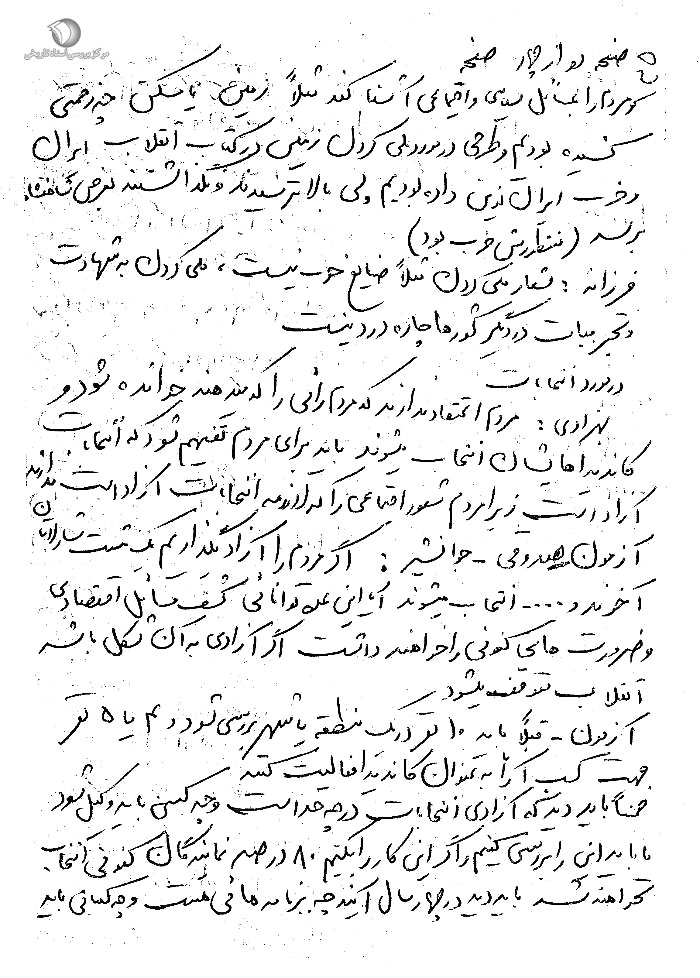 مرکز بررسی اسناد تاریخی
صفحه دو از چهار صفحه
و مردم را بمسائل سیاسی و اجتماعی آشنا کند مثلاً زمین یا مسکن چه زحمتی
کشیده بودیم و طرحی در مورد ملی کردن زمین در کتاب انقلاب ایران
و حزب ایران نوین داده بودیم ولی بالا نرسیدند و نگذاشتند بعرض شاهنشاه
برسد (منظورش حزب بود)
فرزانه : شعار ملی کردن مثلاً صنایع خوب نیست ، ملی کردن به شهادت
و تجربیات در دیگر کشورها چاره درد نیست
در مورد انتخابات
بهزادی : مردم اعتقاد ندارند که مردم رأیی را که میدهند خوانده شود و
کاندیداهایشان انتخاب میشوند باید برای مردم تفهیم شود که انتخابات
آزاد است زیرا مردم شعور اجتماعی را که لازمه انتخابات آزاد است ندارند
آزمون - صدوقی - جوانشیر : اگر مردم را آزاد بگذاریم یک مشت
آخوند و .... انتخاب میشوند آیا این عده توانائی کشف مسائل اقتصادی
و ضرورت های کنونی را خواهند داشت اگر آزادی به این شکل باشد
انقلاب متوقف میشود
آزمون - قبلاً باید ۱۰ نفر در یک منطقه یا شهر بررسی شود و ۳ یا ۵ نفر
جهت کسب آراء به عنوان کاندیدا فعالیت کنند
ضمناً باید دید که آزادی انتخابات در چه حد است و چه کسی باید وکیل شود
ما باید این را بررسی کنیم و اگر این کار را بکنیم ۸۰ درصد نمایندگان کنونی انتخاب
نخواهند شد باید دید در چهار سال آینده چه برنامه هائی هست و چه کسانی باید